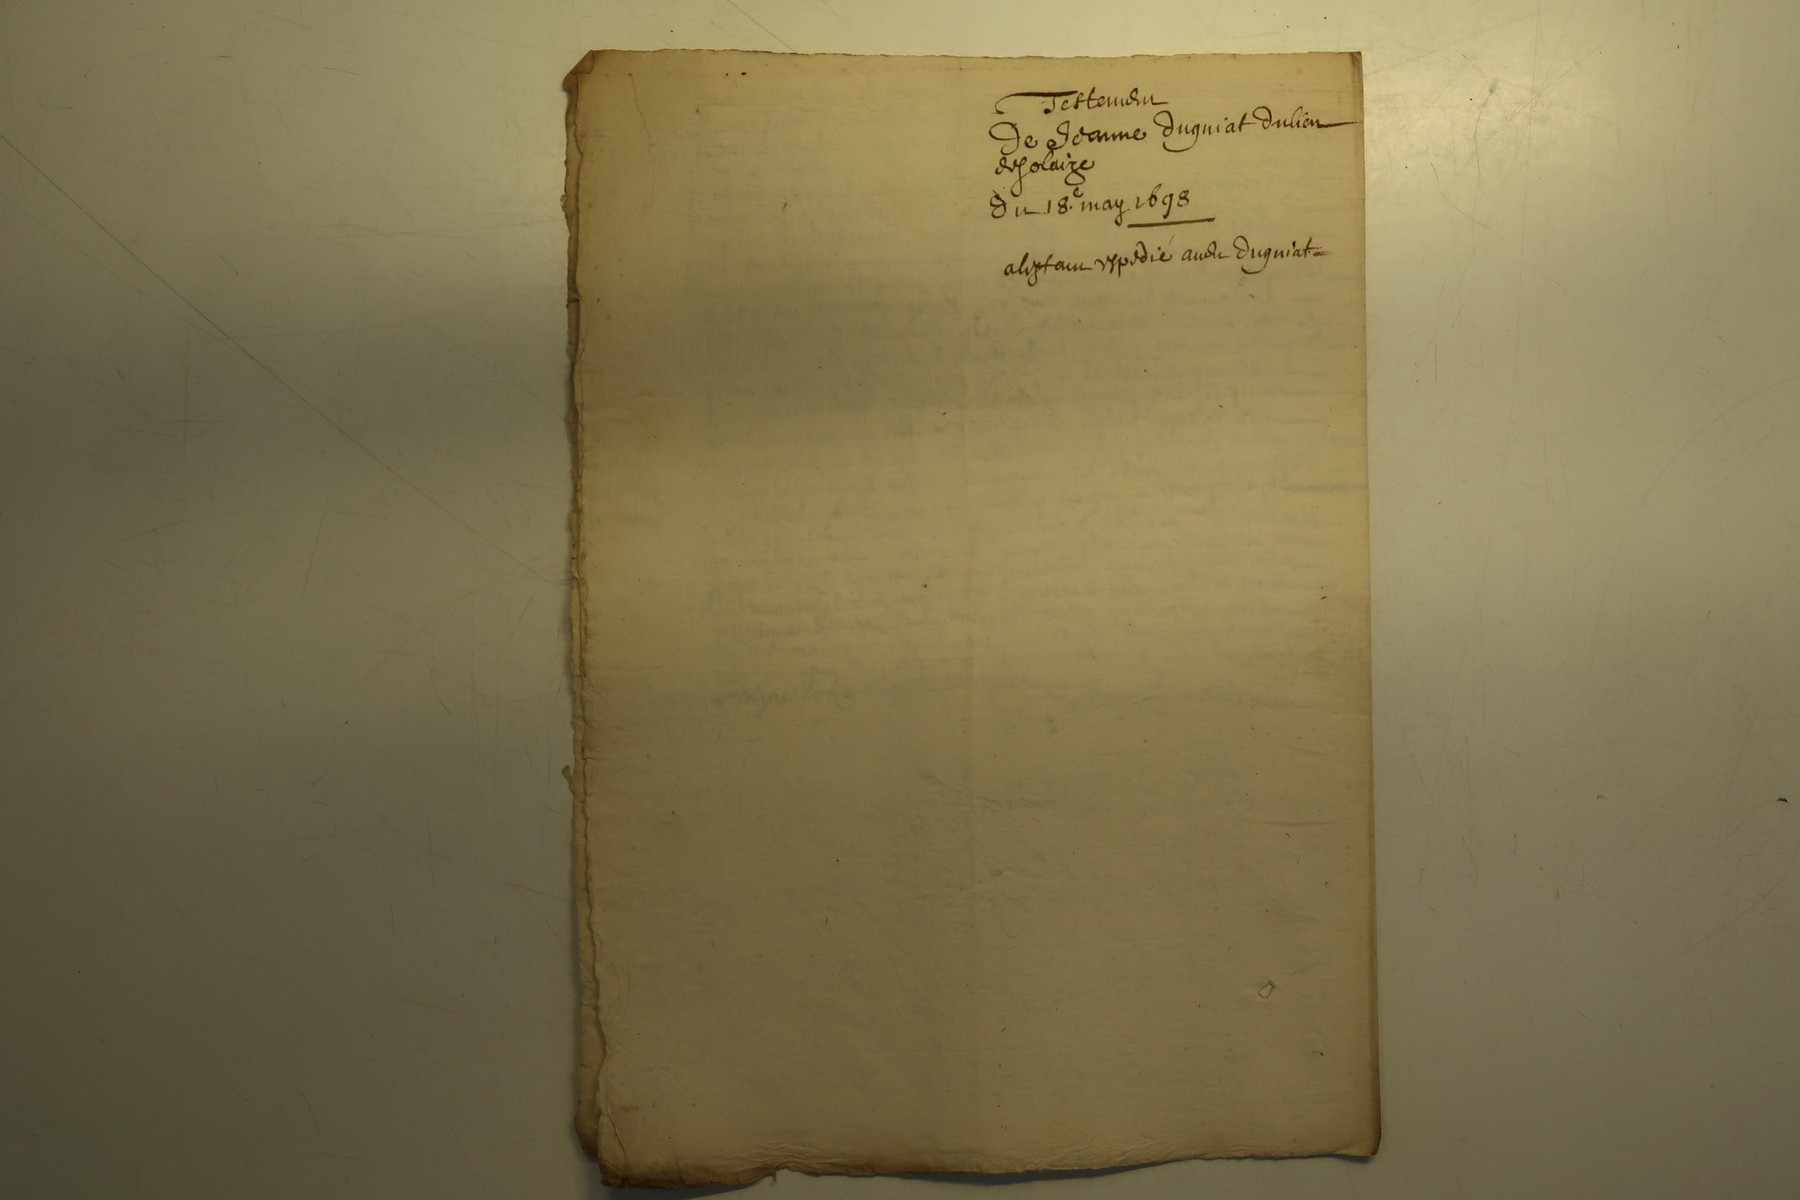 Testement
De Jeanne Dugniat Du lieu
de Jolaize
Du 18.e may 1698
expedié audit Dugniat